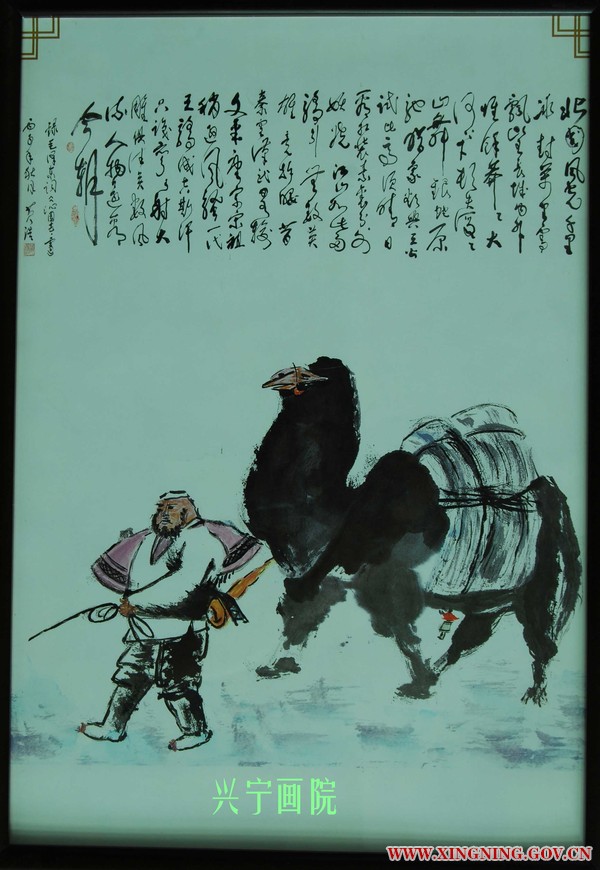 北国风光千里
冰封万里雪
飘望长城内外
惟余莽莽大
河上下顿失滔滔
山舞银蛇原
驰蜡象欲与天公
试比高须晴日
看红装素裹分外
妖娆江山如此多
娇引无数英
雄竞折腰昔
秦皇汉武略输
文采唐宗宋祖
稍逊风骚一代
天骄成吉思汗
只识弯弓射大
雕俱往矣数风
流人物还看
今朝
录毛泽东词沁园春雪
丙子年秋月
兴宁画院
WWW.XINGNING.GOV.CN